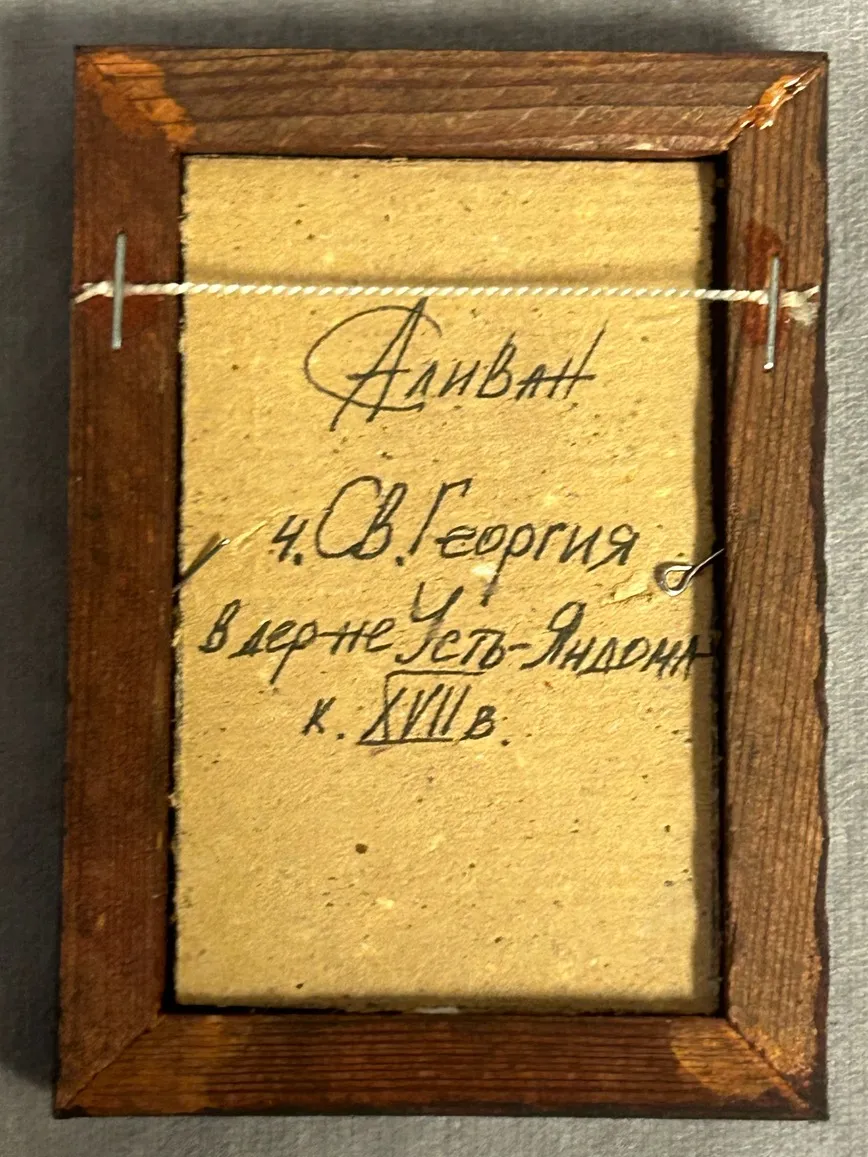 Аливан
ч. Св. Георгия
в дер-не Усть-Яндома
к. XVII в.